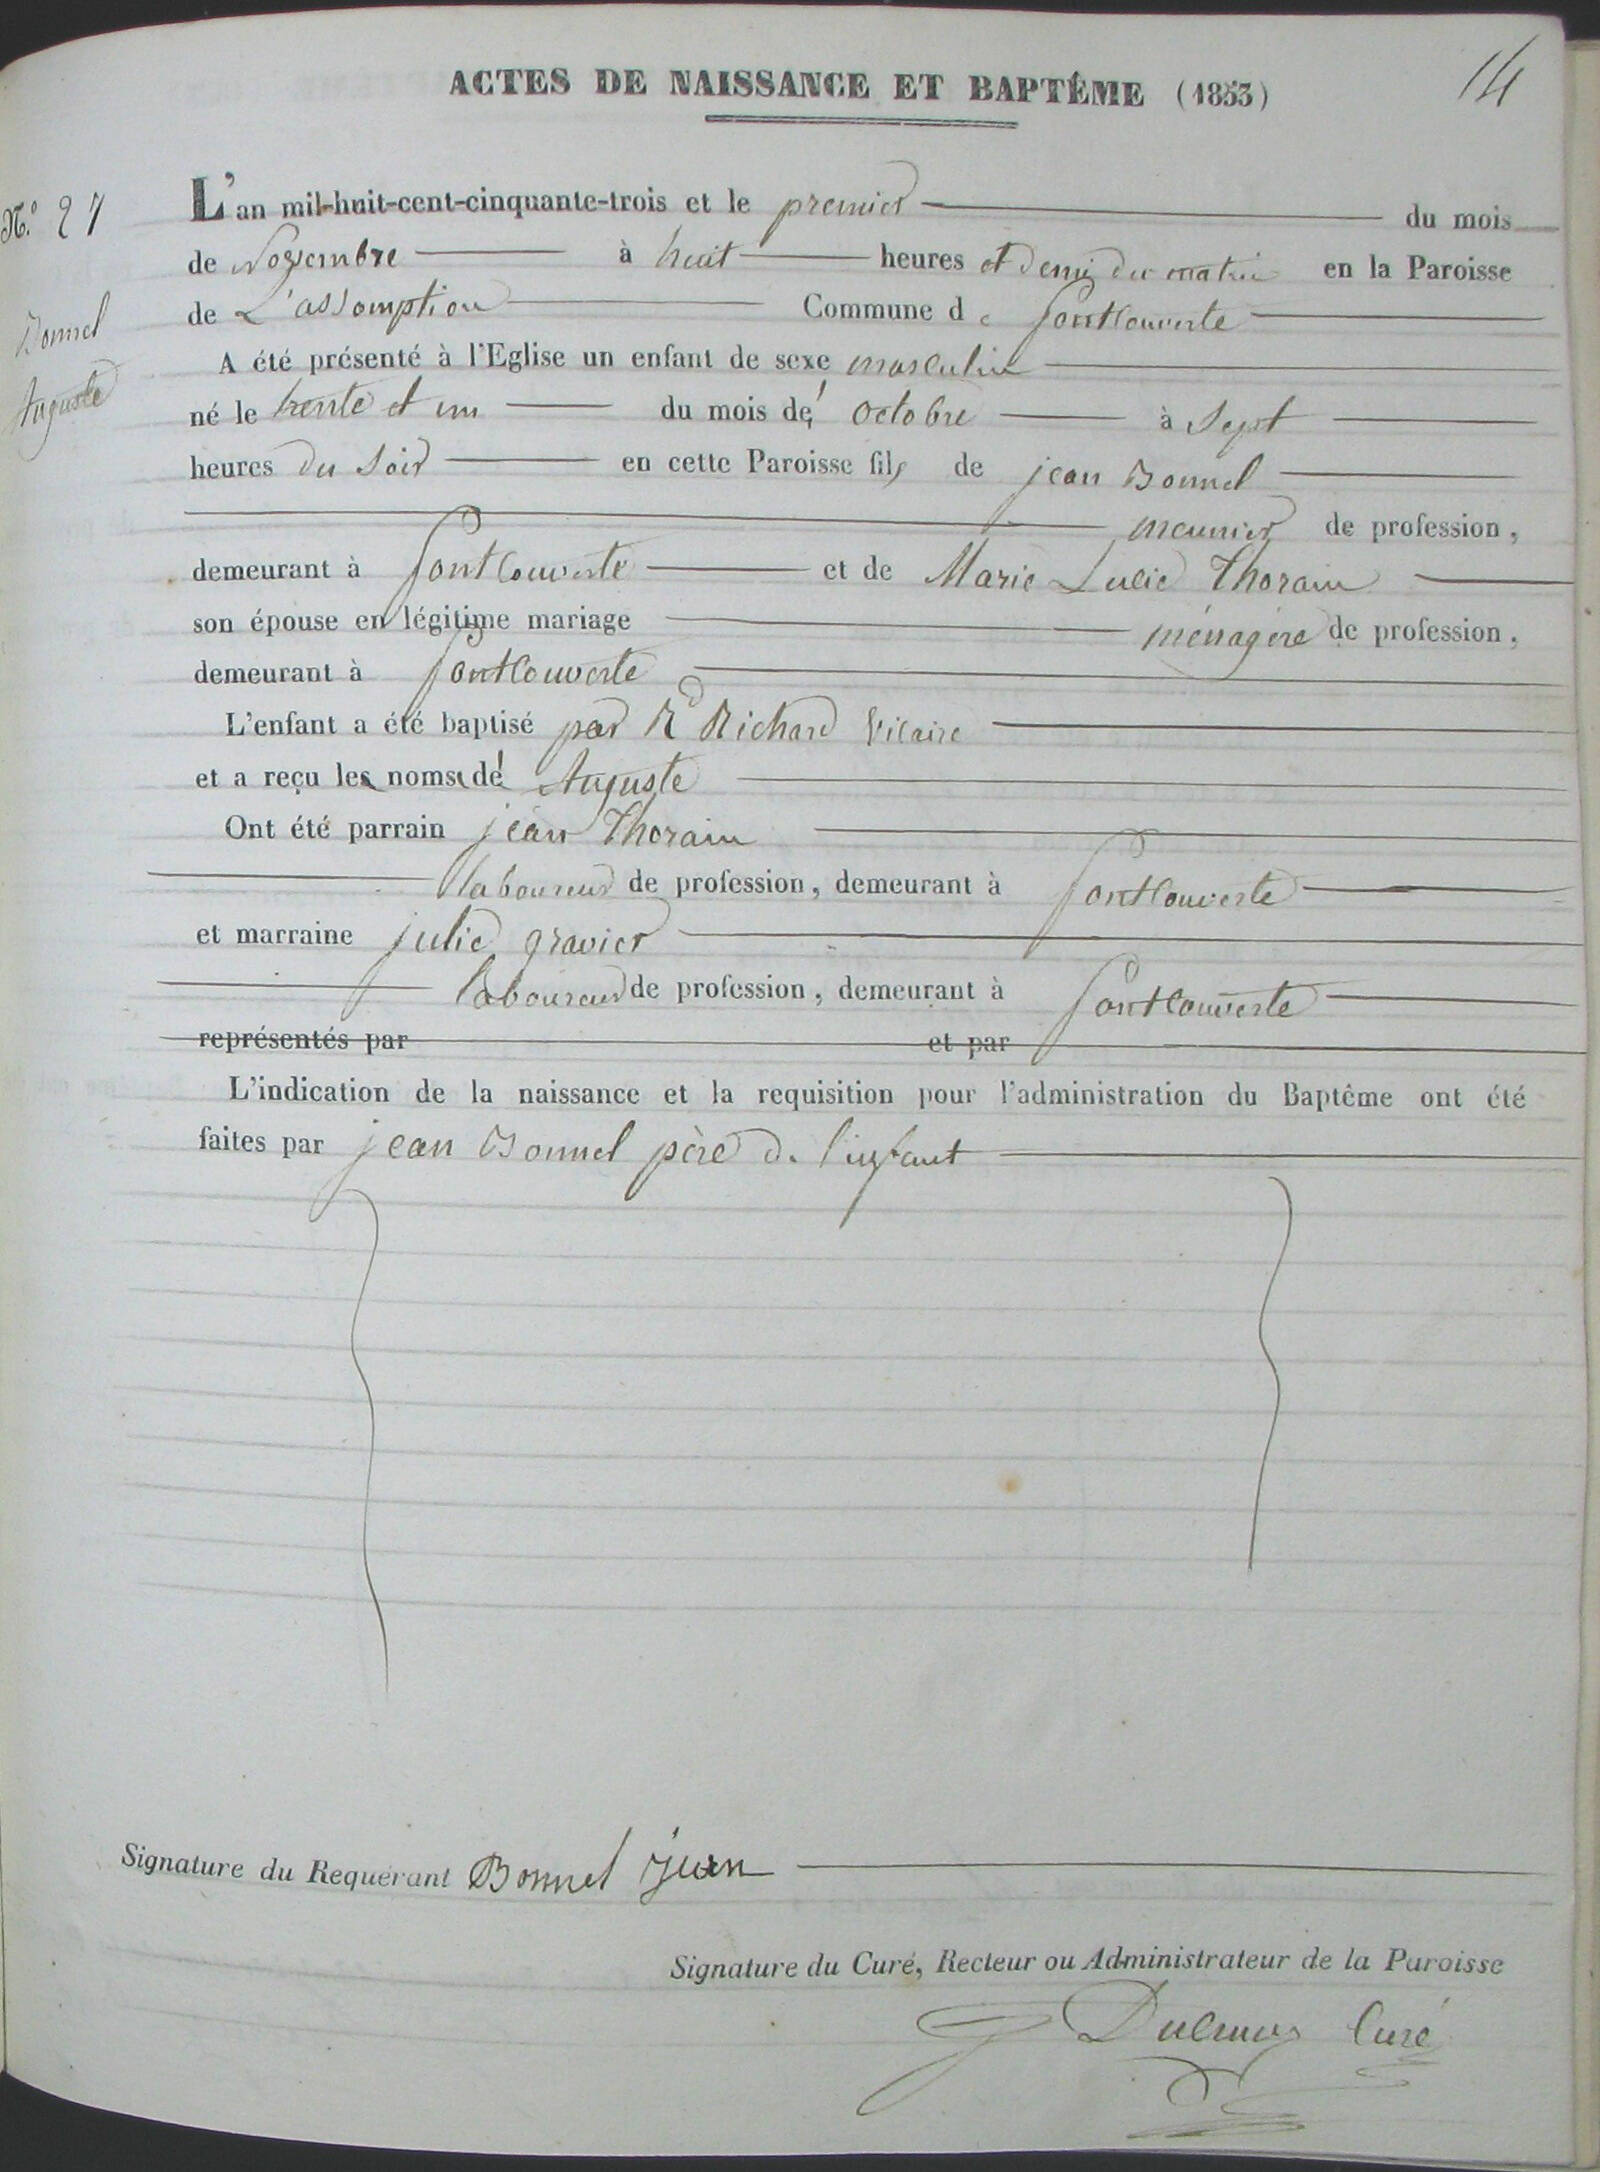 ACTES DE NAISSANCE ET BAPTÊME (1853)
14
N.º 27
Bonnel
Auguste
L'an mil-huit-cent-cinquante-trois et le premier du mois
de Novembre à huit heures et demi du matin en la Paroisse
de L'assomption Commune de fontcouverte
A été présenté à l'Eglise un enfant de sexe masculin
né le trente et un du mois d' octobre à sept
heures du soir en cette Paroisse fils de jean Bonnel
meunier de profession,
demeurant à fontcouverte et de Marie Lucie Thorain
son épouse en légitime mariage ménagère de profession,
demeurant à fontcouverte
L'enfant a été baptisé par Rd Richard Vicaire
et a reçu le nom d' Auguste
Ont été parrain jean Thorain
laboureur de profession, demeurant à fontcouverte
et marraine julie gravier
laboureur de profession, demeurant à fontcouverte
représentés par et par
L'indication de la naissance et la requisition pour l'administration du Baptême ont été
faites par jean Bonnel père de l'enfant
Signature du Requérant Bonnel jean
Signature du Curé, Recteur ou Administrateur de la Paroisse
Curé